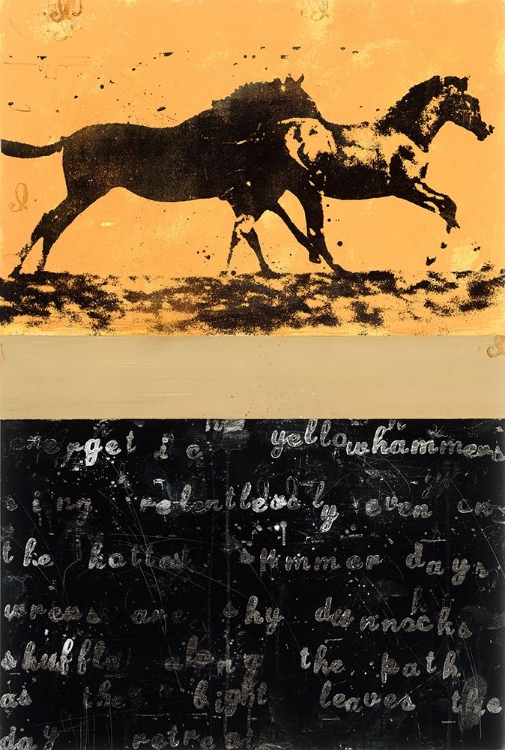 energetic yellowhammers
sing relentlessly even on
the hottest summer days
wrens are shy dunnocks
shuffle along the path
as the light leaves the
day retreat